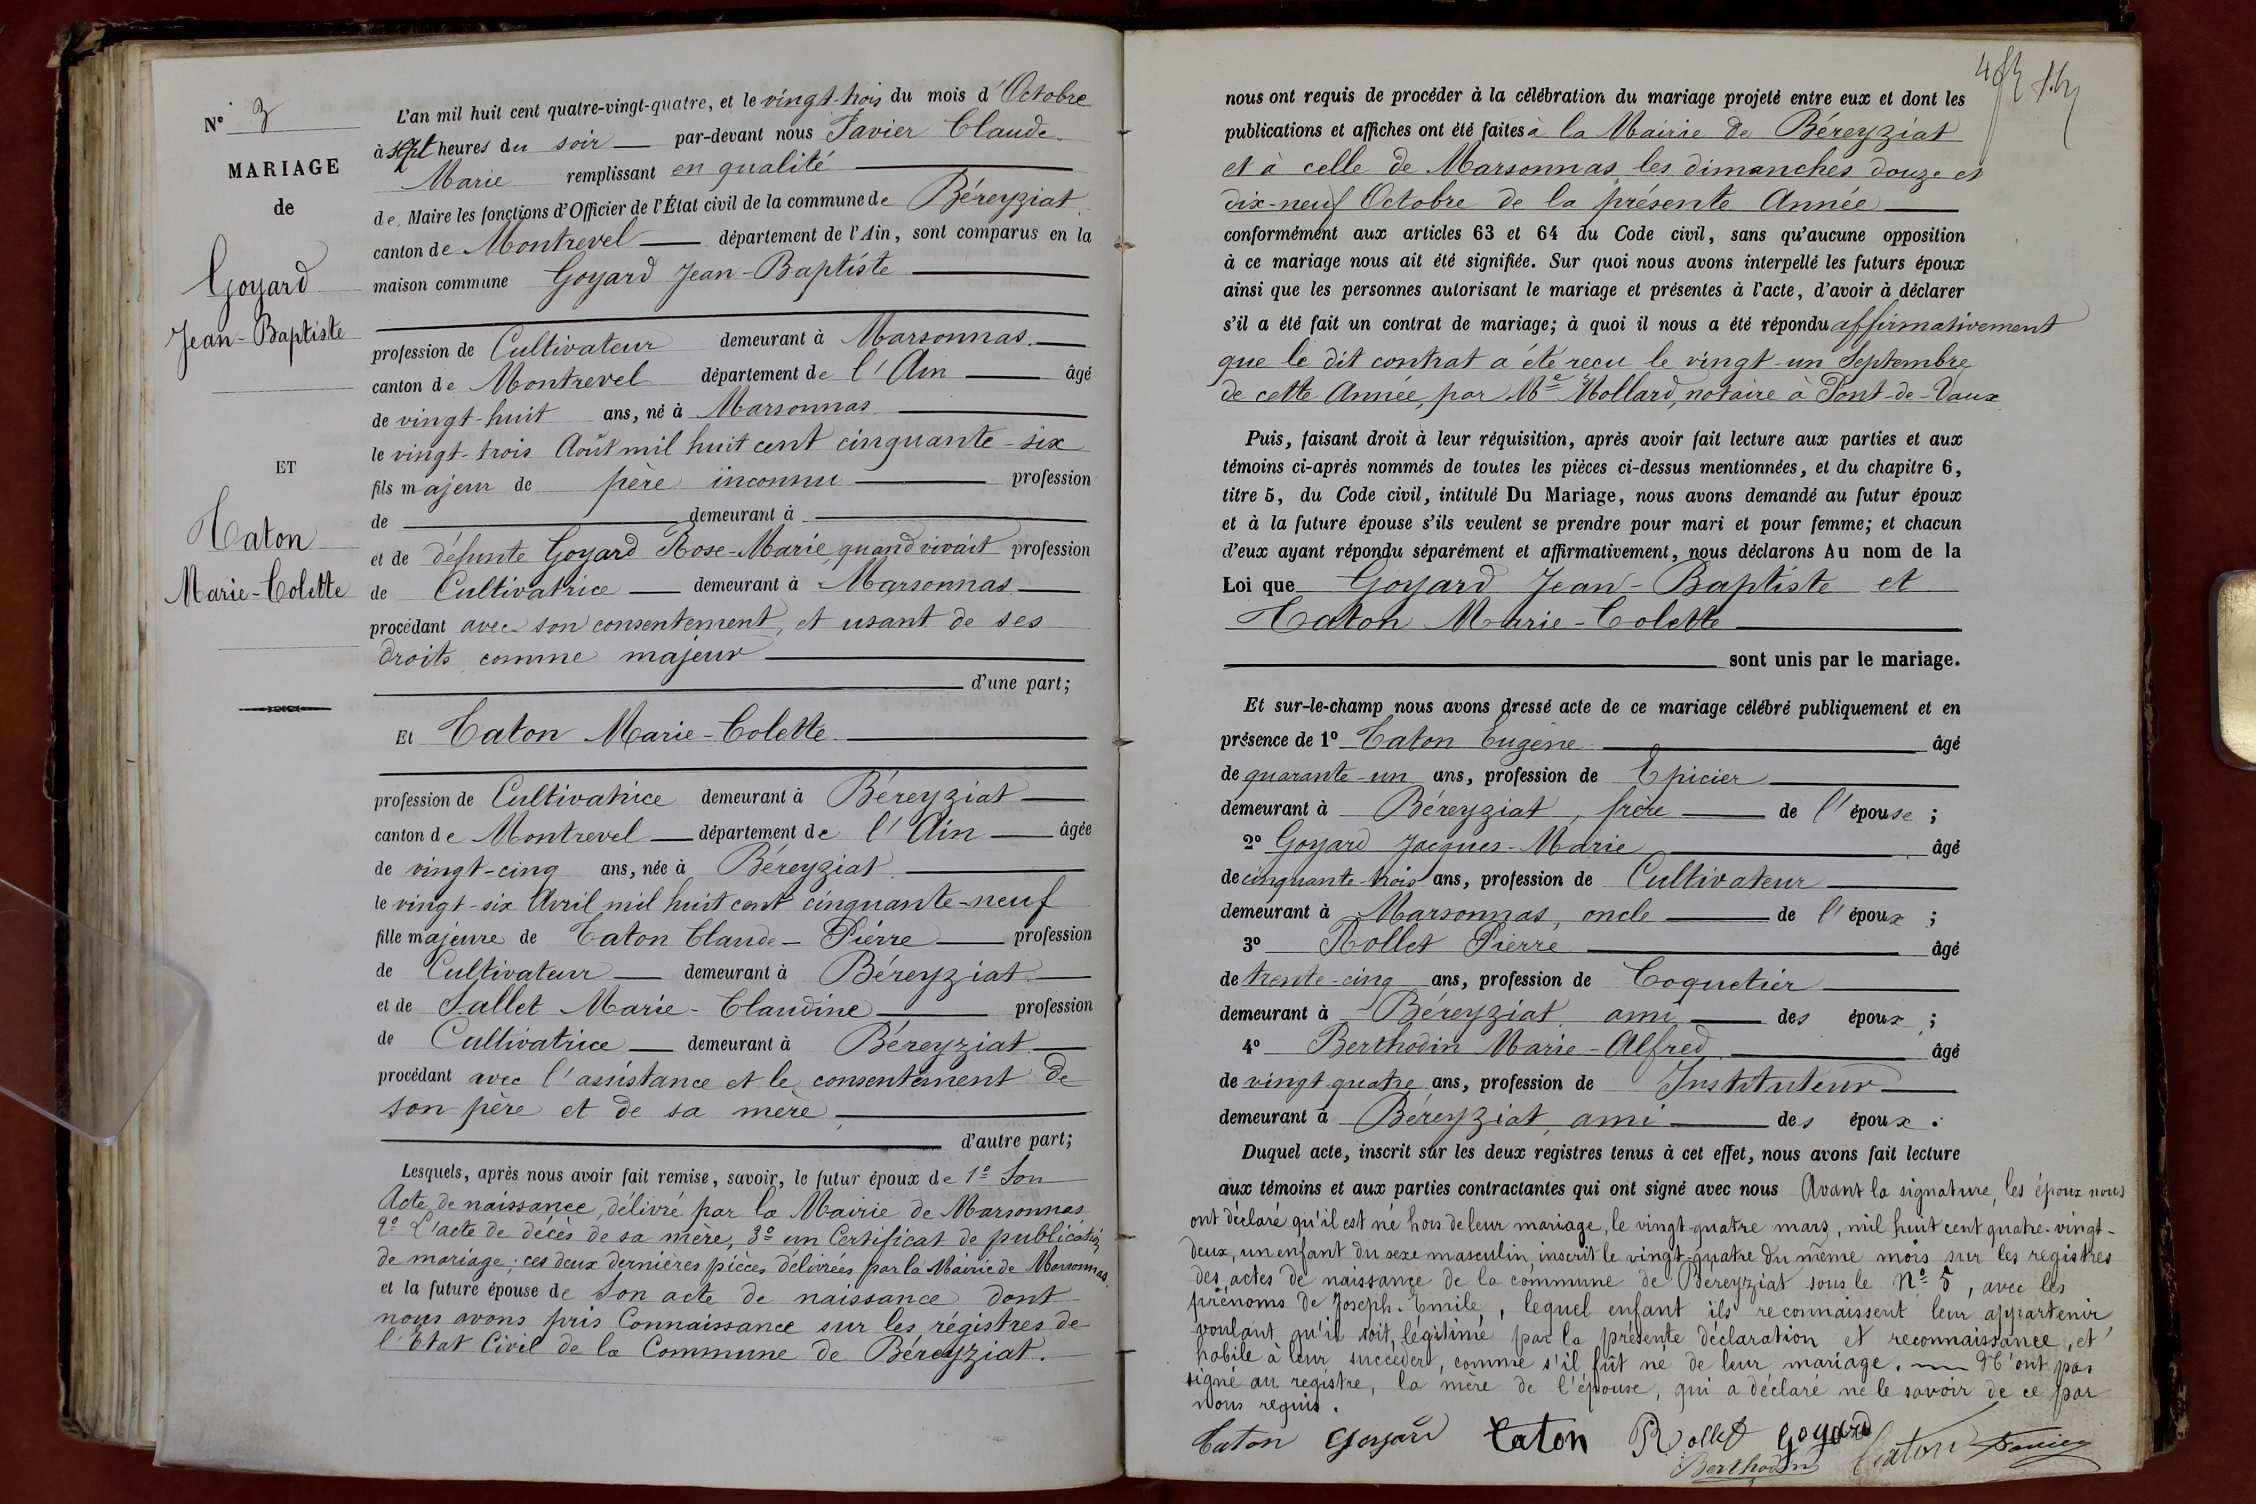 N° 3
MARIAGE
de
Goyard
Jean-Baptiste
ET
Caton
Marie-Colette
L'an mil huit cent quatre-vingt-quatre, et le vingt-trois du mois d'Octobre
à sept heures du soir par-devant nous Favier Claude
Marie remplissant en qualité
de Maire les fonctions d'Officier de l'État civil de la commune de Béreyziat
canton de Montrevel département de l'Ain, sont comparus en la
maison commune Goyard Jean-Baptiste
profession de Cultivateur demeurant à Marsonnas
canton de Montrevel département de l'Ain âgé
de vingt-huit ans, né à Marsonnas
le vingt-trois Août mil huit cent cinquante-six
fils majeur de père inconnu profession
de demeurant à
et de défunte Goyard Rose-Marie, quand vivait profession
de Cultivatrice demeurant à Marsonnas
procédant avec son consentement, et usant de ses
droits comme majeur
d'une part;
Et Caton Marie-Colette
profession de Cultivatrice demeurant à Béreyziat
canton de Montrevel département de l'Ain âgée
de vingt-cinq ans, née à Béreyziat
le vingt-six Avril mil huit cent cinquante-neuf
fille majeure de Caton Claude-Pierre profession
de Cultivateur demeurant à Béreyziat
et de Sallet Marie-Claudine profession
de Cultivatrice demeurant à Béreyziat
procédant avec l'assistance et le consentement de
son père et de sa mère
d'autre part;
Lesquels, après nous avoir fait remise, savoir, le futur époux de 1° Son
Acte de naissance, délivré par la Mairie de Marsonnas
2° L'acte de décès de sa mère, 3° un Certificat de publication
de mariage; ces deux dernières pièces délivrées par la Mairie de Marsonnas.
et la future épouse de Son acte de naissance dont
nous avons pris Connaissance sur les régistres de
l'Etat Civil de la Commune de Béreyziat.
nous ont requis de procéder à la célébration du mariage projeté entre eux et dont les
publications et affiches ont été faites à la Mairie de Béreyziat
et à celle de Marsonnas les dimanches douze et
dix-neuf Octobre de la présente Année
conformément aux articles 63 et 64 du Code civil, sans qu'aucune opposition
à ce mariage nous ait été signifiée. Sur quoi nous avons interpellé les futurs époux
ainsi que les personnes autorisant le mariage et présentes à l'acte, d'avoir à déclarer
s'il a été fait un contrat de mariage; à quoi il nous a été répondu affirmativement
que le dit contrat a été reçu le vingt-un Septembre
de cette Année, par Me Mollard, notaire à Pont-de-Vaux
Puis, faisant droit à leur réquisition, après avoir fait lecture aux parties et aux
témoins ci-après nommés de toutes les pièces ci-dessus mentionnées, et du chapitre 6,
titre 5, du Code civil, intitulé Du Mariage, nous avons demandé au futur époux
et à la future épouse s'ils veulent se prendre pour mari et pour femme; et chacun
d'eux ayant répondu séparément et affirmativement, nous déclarons Au nom de la
Loi que Goyard Jean-Baptiste et
Caton Marie-Colette
sont unis par le mariage.
Et sur-le-champ nous avons dressé acte de ce mariage célébré publiquement et en
présence de 1° Caton Eugène âgé
de quarante-un ans, profession de Epicier
demeurant à Béreyziat, frère de l'épouse;
2° Goyard Jacques-Marie âgé
de cinquante-trois ans, profession de Cultivateur
demeurant à Marsonnas, oncle de l'époux;
3° Rollet Pierre âgé
de trente-cinq ans, profession de Coquetier
demeurant à Béreyziat ami des époux;
4° Berthodin Marie-Alfred âgé
de vingt quatre ans, profession de Instituteur
demeurant à Béreyziat, ami des époux.
Duquel acte, inscrit sur les deux registres tenus à cet effet, nous avons fait lecture
aux témoins et aux parties contractantes qui ont signé avec nous Avant la signature, les époux nous
ont déclaré qu'il est né hors de leur mariage, le vingt-quatre mars, mil huit cent quatre-vingt-
deux, un enfant du sexe masculin, inscrit le vingt-quatre du même mois sur les registres
des actes de naissance de la commune de Béreyziat sous le N° 5, avec les
prénoms de Joseph-Emile, lequel enfant ils reconnaissent leur appartenir
voulant qu'il soit légitimé par la présente déclaration et reconnaissance, et
habile à leur succéder, comme s'il fût né de leur mariage. N'ont pas
signé au registre, la mère de l'épouse, qui a déclaré ne le savoir de ce par
nous requis.
Caton Goyard Caton Rollet Goyard
Berthodin Caton Favier